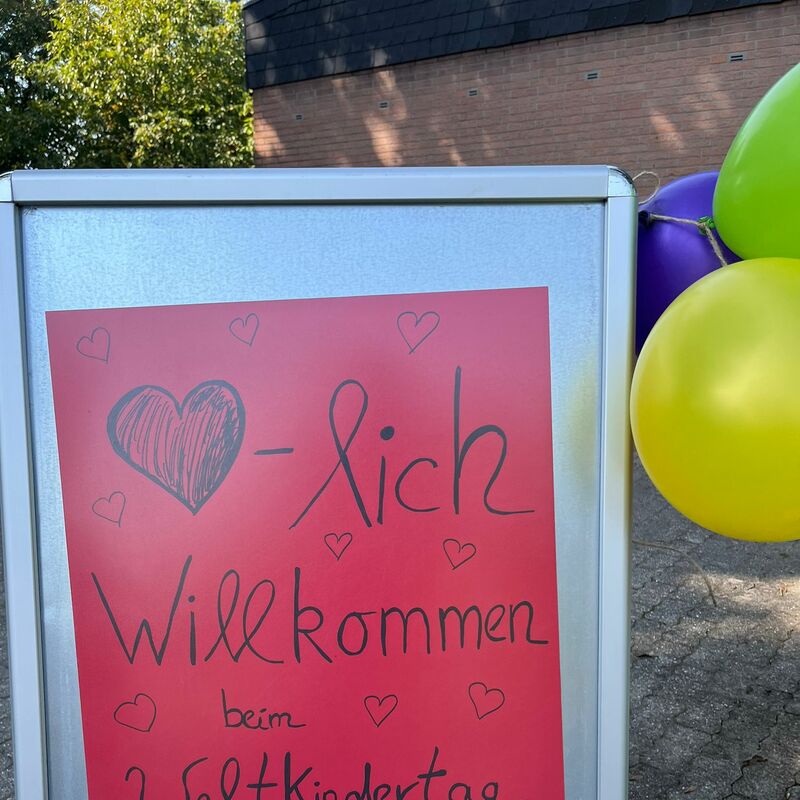 ♥-lich
Willkommen
beim
Weltkindertag